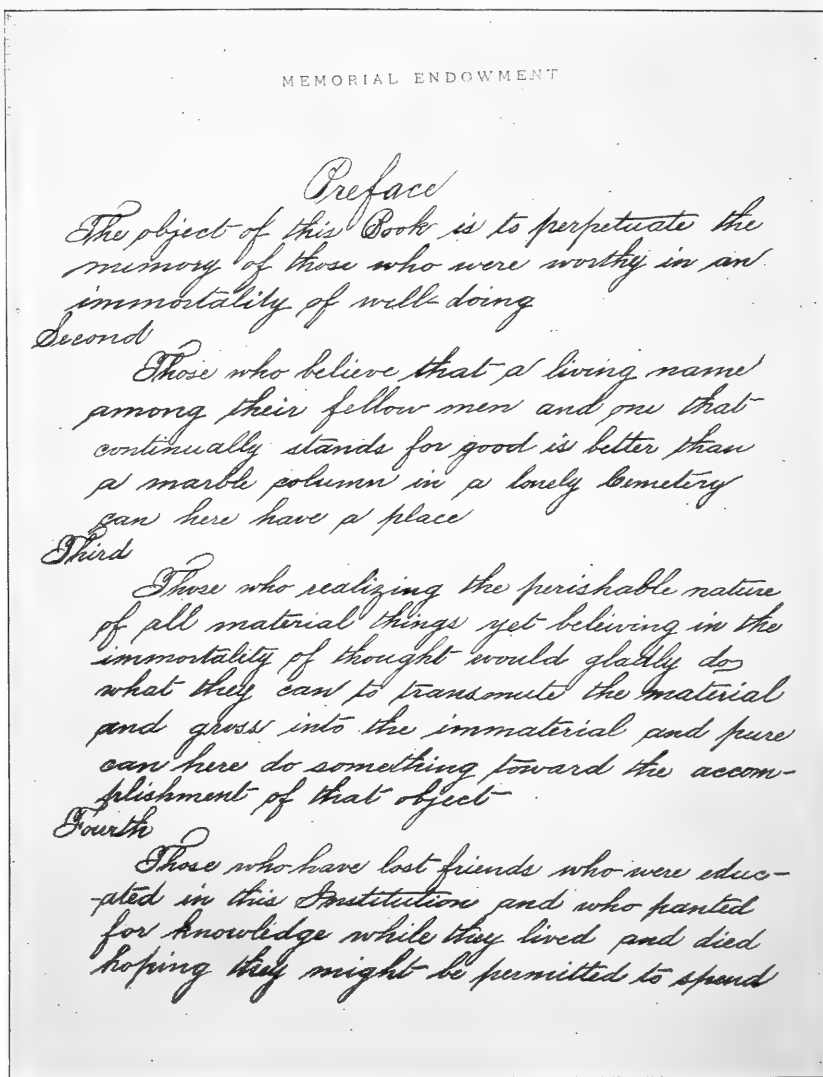 MEMORIAL ENDOWMENT
Preface
The object of this Book is to perpetuate the
memory of those who were worthy in an
immortality of well-doing
Second
Those who believe that a living name
among their fellow men and one that
continually stands for good is better than
a marble column in a lonely Cemetery
can here have a place
Third
Those who realizing the perishable nature
of all material things yet beleiving in the
immortality of thought would gladly do
what they can to transmute the material
and gross into the immaterial and pure
can here do something toward the accom-
plishment of that object
Fourth
Those who have lost friends who were educ-
-ated in this Institution and who panted
for knowledge while they lived and died
hoping they might be permitted to spend